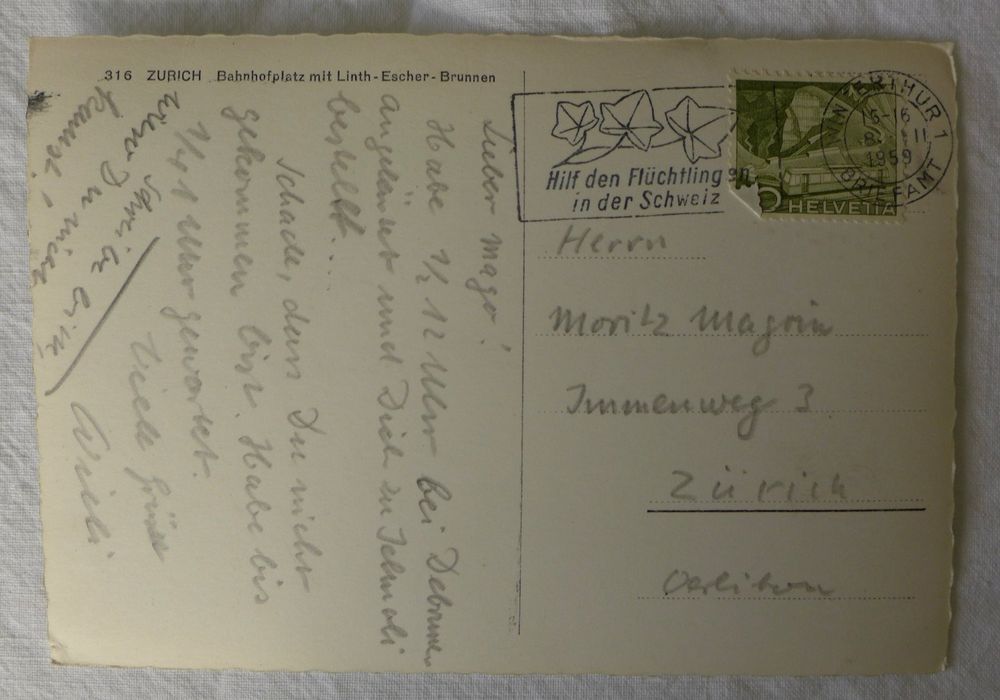 316 ZÜRICH Bahnhofplatz mit Linth-Escher-Brunnen
Lieber Mago!
Habe ½ 12 Uhr bei Debrunner
angeläutet und Dich zu Jelmoli
bestellt...
Schade, dass Du nicht
gekommen bist. Habe bis
¼ 1 Uhr gewartet.
Viele Grüsse
Willi
Hilf den Flüchtlingen
in der Schweiz
WINTERTHUR 1
15-16
II
1959
BRIEFAMT
5 HELVETIA
Herrn
Moritz Magrin
Immenweg 3
Zürich
Oerlikon